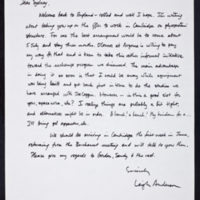 Dear Sydney,
Welcome back to England - rested and well I hope. I'm writing
about taking you up on the offer to work in Cambridge on
structure. For us the best arrangement would be to come about
5 July and stay than months. is willing to
my way so that and is seen to take this either informal initiative
toward the exchange program we discussed. The main advantage
in doing it so soon is that I could be away while equipment
was being built and get back just in time to do the studies we
have arranged with However - is this a good slot for
you, space-wise, etc? I realize things are probably a bit tight,
and alternatives might be in order. A bench's a bench! My hardware for a
I'll bring
We should be arriving in Cambridge the first week in June,
returning from the meeting and will talk to you then.
Please give my regards to Gordon, Sandy & the rest.
Sincerely
Leigh Anderson